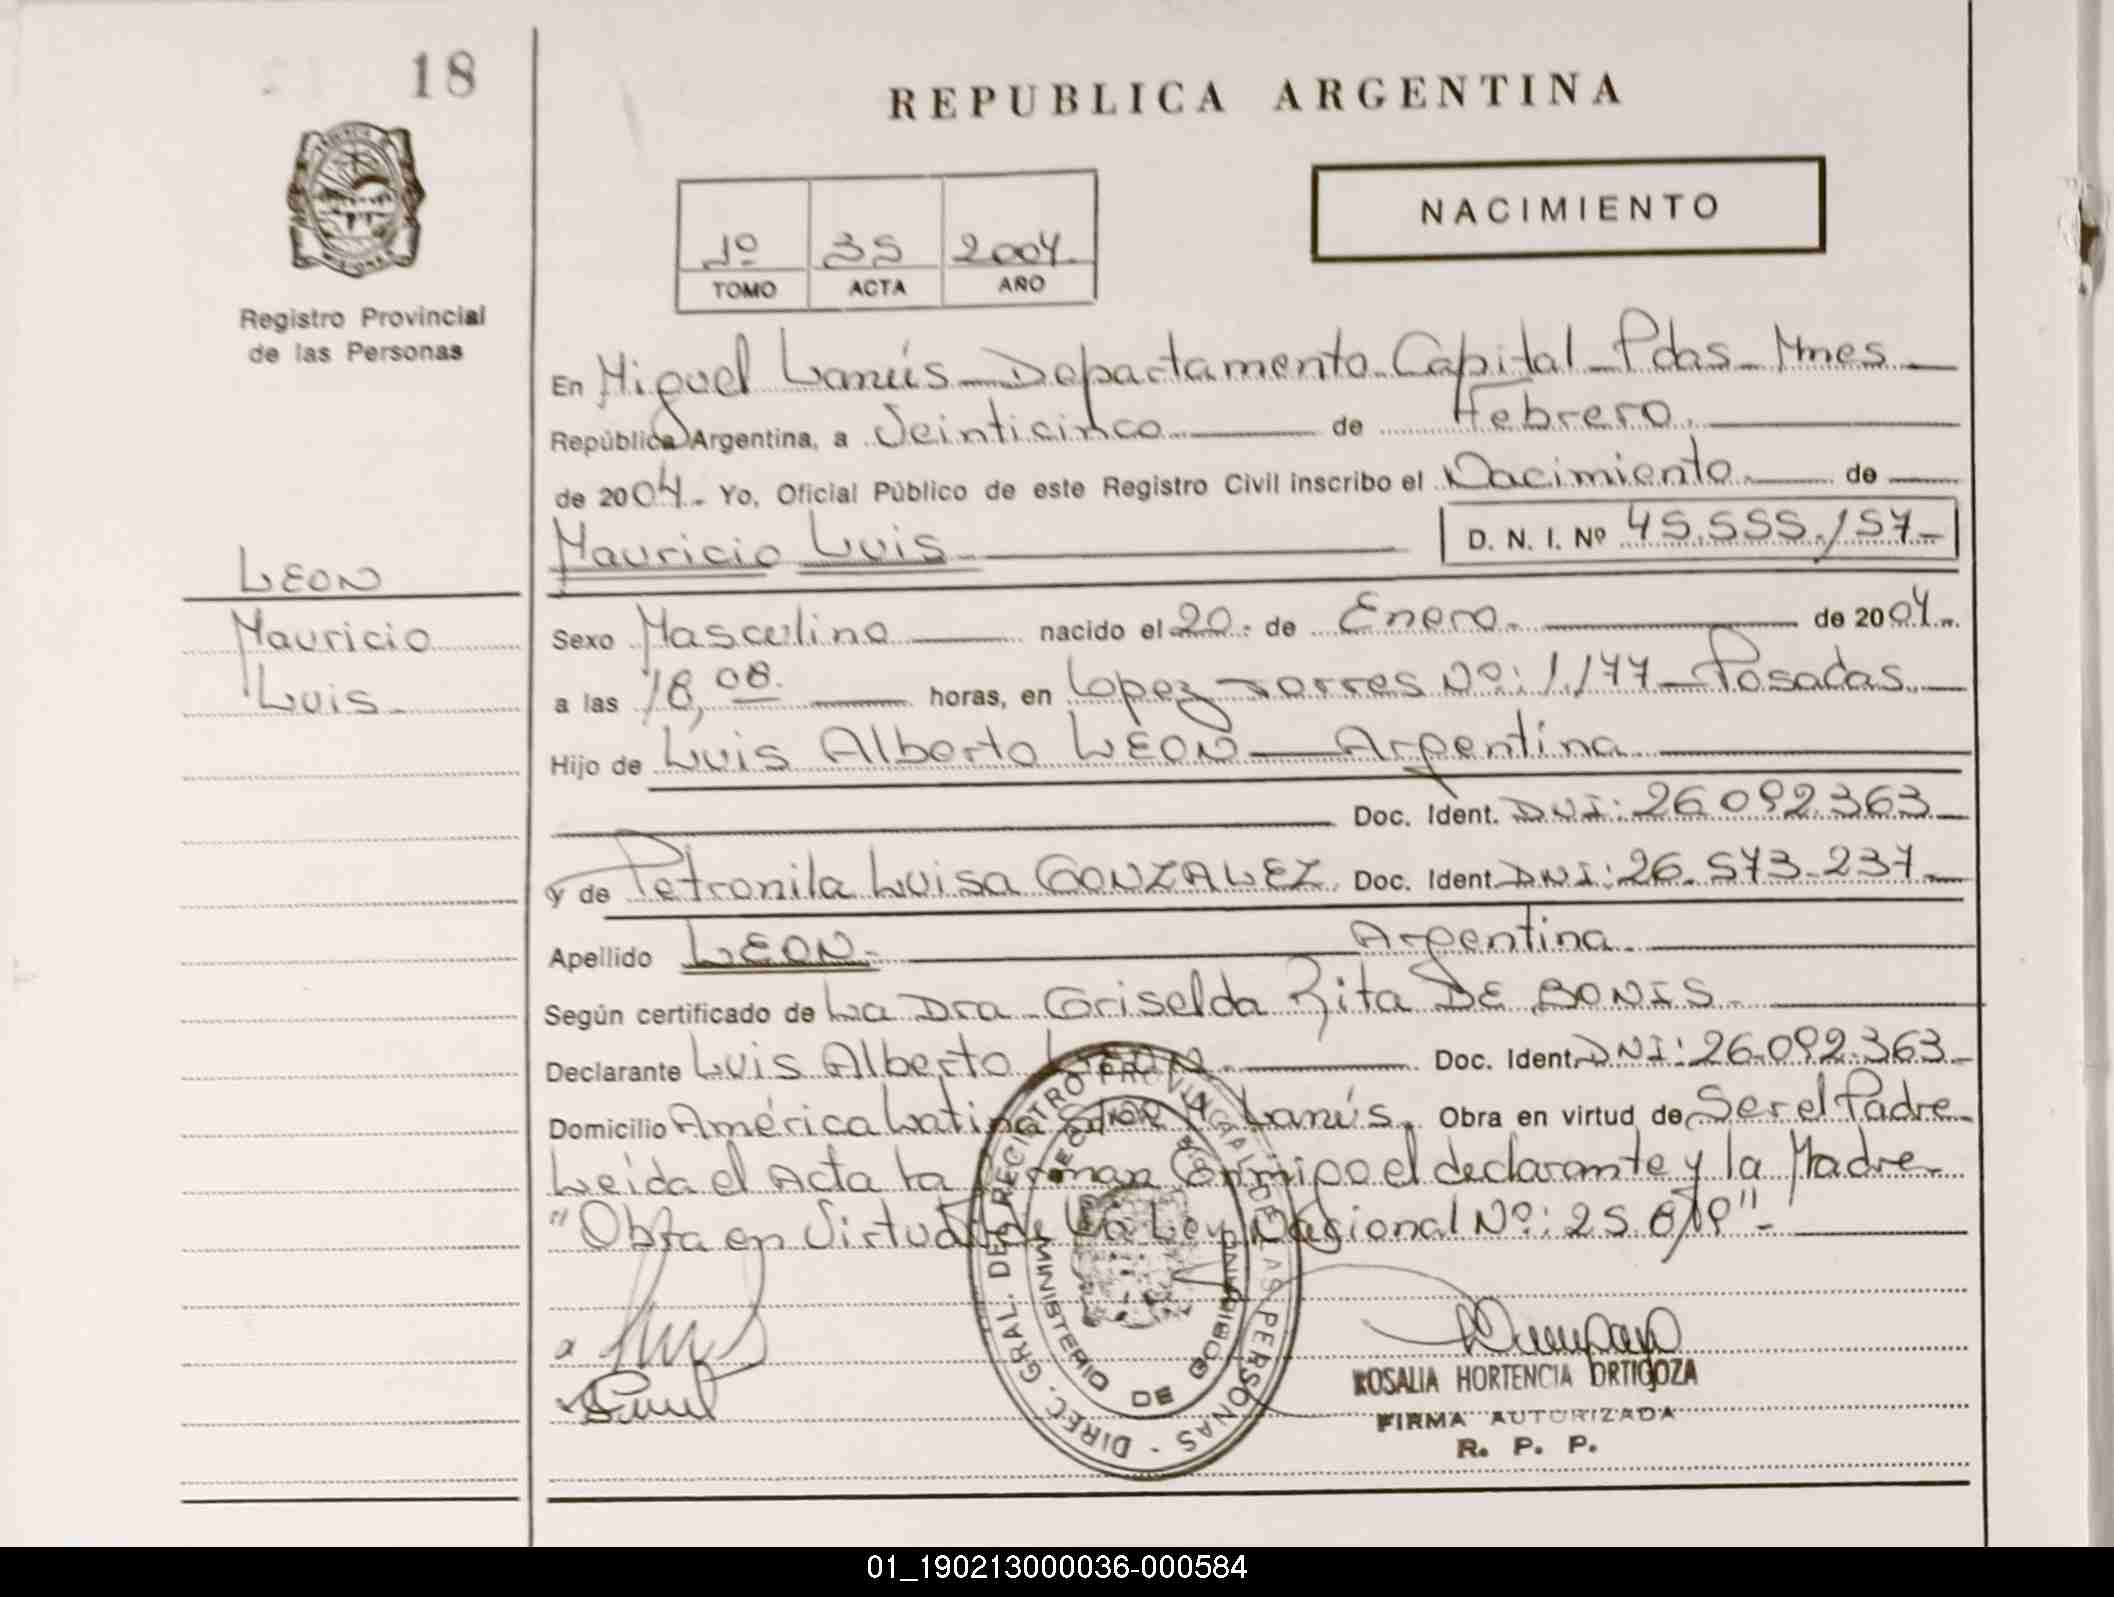 18
REPUBLICA ARGENTINA
NACIMIENTO
1º 35 2004.
TOMO ACTA AÑO
Registro Provincial
de las Personas
En Miguel Lanús - Departamento Capital - Pdas - Mnes
República Argentina, a Veinticinco de Febrero.
de 2004. Yo, Oficial Público de este Registro Civil inscribo el Nacimiento. de
Mauricio Luis D. N. I. Nº 45.555.157-
LEON
Mauricio
Luis.
Sexo Masculino nacido el 20. de Enero. de 2004.
a las 18,08. horas, en Lopez Torres Nº: 1.177 - Posadas.
Hijo de Luis Alberto LEON - Argentina
Doc. Ident. DNI: 26.092.363
y de Petronila Luisa GONZALEZ. Doc. Ident. DNI: 26.573.237-
Apellido LEON. Argentina.
Según certificado de La Dra. Griselda Rita DE BONIS.
Declarante Luis Alberto LEON. Doc. Ident. DNI: 26.092.363-
Domicilio América Latina Lanús. Obra en virtud de Ser el Padre
Leída el Acta la firman Conmigo el declarante y la Madre
"Obra en Virtud de La Ley Nacional Nº: 25.819"-
DIREC. GRAL. DEL REGISTRO PROVINCIAL DE LAS PERSONAS
MINISTERIO DE GOBIERNO
ROSALIA HORTENCIA ORTIGOZA
FIRMA AUTORIZADA
R. P. P.
01_190213000036-000584